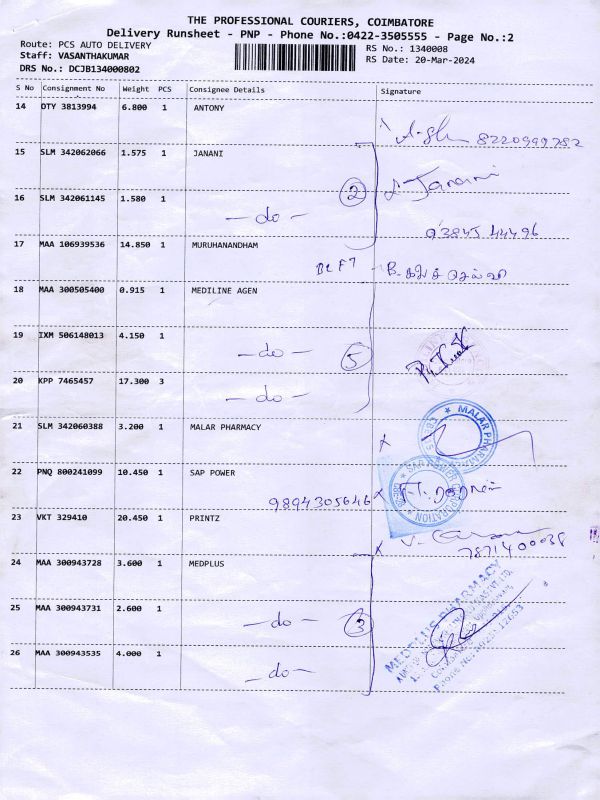 THE PROFESSIONAL COURIERS, COIMBATORE
Delivery Runsheet - PNP - Phone No.:0422-3505555 - Page No.:2
Route: PCS AUTO DELIVERY
RS No.: 1340008
Staff: VASANTHAKUMAR
RS Date: 20-Mar-2024
DRS No.: DCJB134000802
S No Consignment No Weight PCS Consignee Details Signature
14 OTY 3813994 6.800 1 ANTONY
8220999282
15 SLM 342062066 1.575 1 JANANI
Janani
16 SLM 342061145 1.580 1 — do — 2
93845 44496
17 MAA 106939536 14.850 1 MURUHANANDHAM
18 MAA 300505400 0.915 1 MEDILINE AGEN
19 IXM 506148013 4.150 1 — do — 5
20 KPP 7465457 17.300 3 — do —
21 SLM 342060388 3.200 1 MALAR PHARMACY
MALAR PHARMACY
22 PNQ 800241099 10.450 1 SAP POWER
9894305646
23 VKT 329410 20.450 1 PRINTZ
7871400038
24 MAA 300943728 3.600 1 MEDPLUS
MEDPLUS PHARMACY
25 MAA 300943731 2.600 1 — do — 3
26 MAA 300943535 4.000 1 — do —